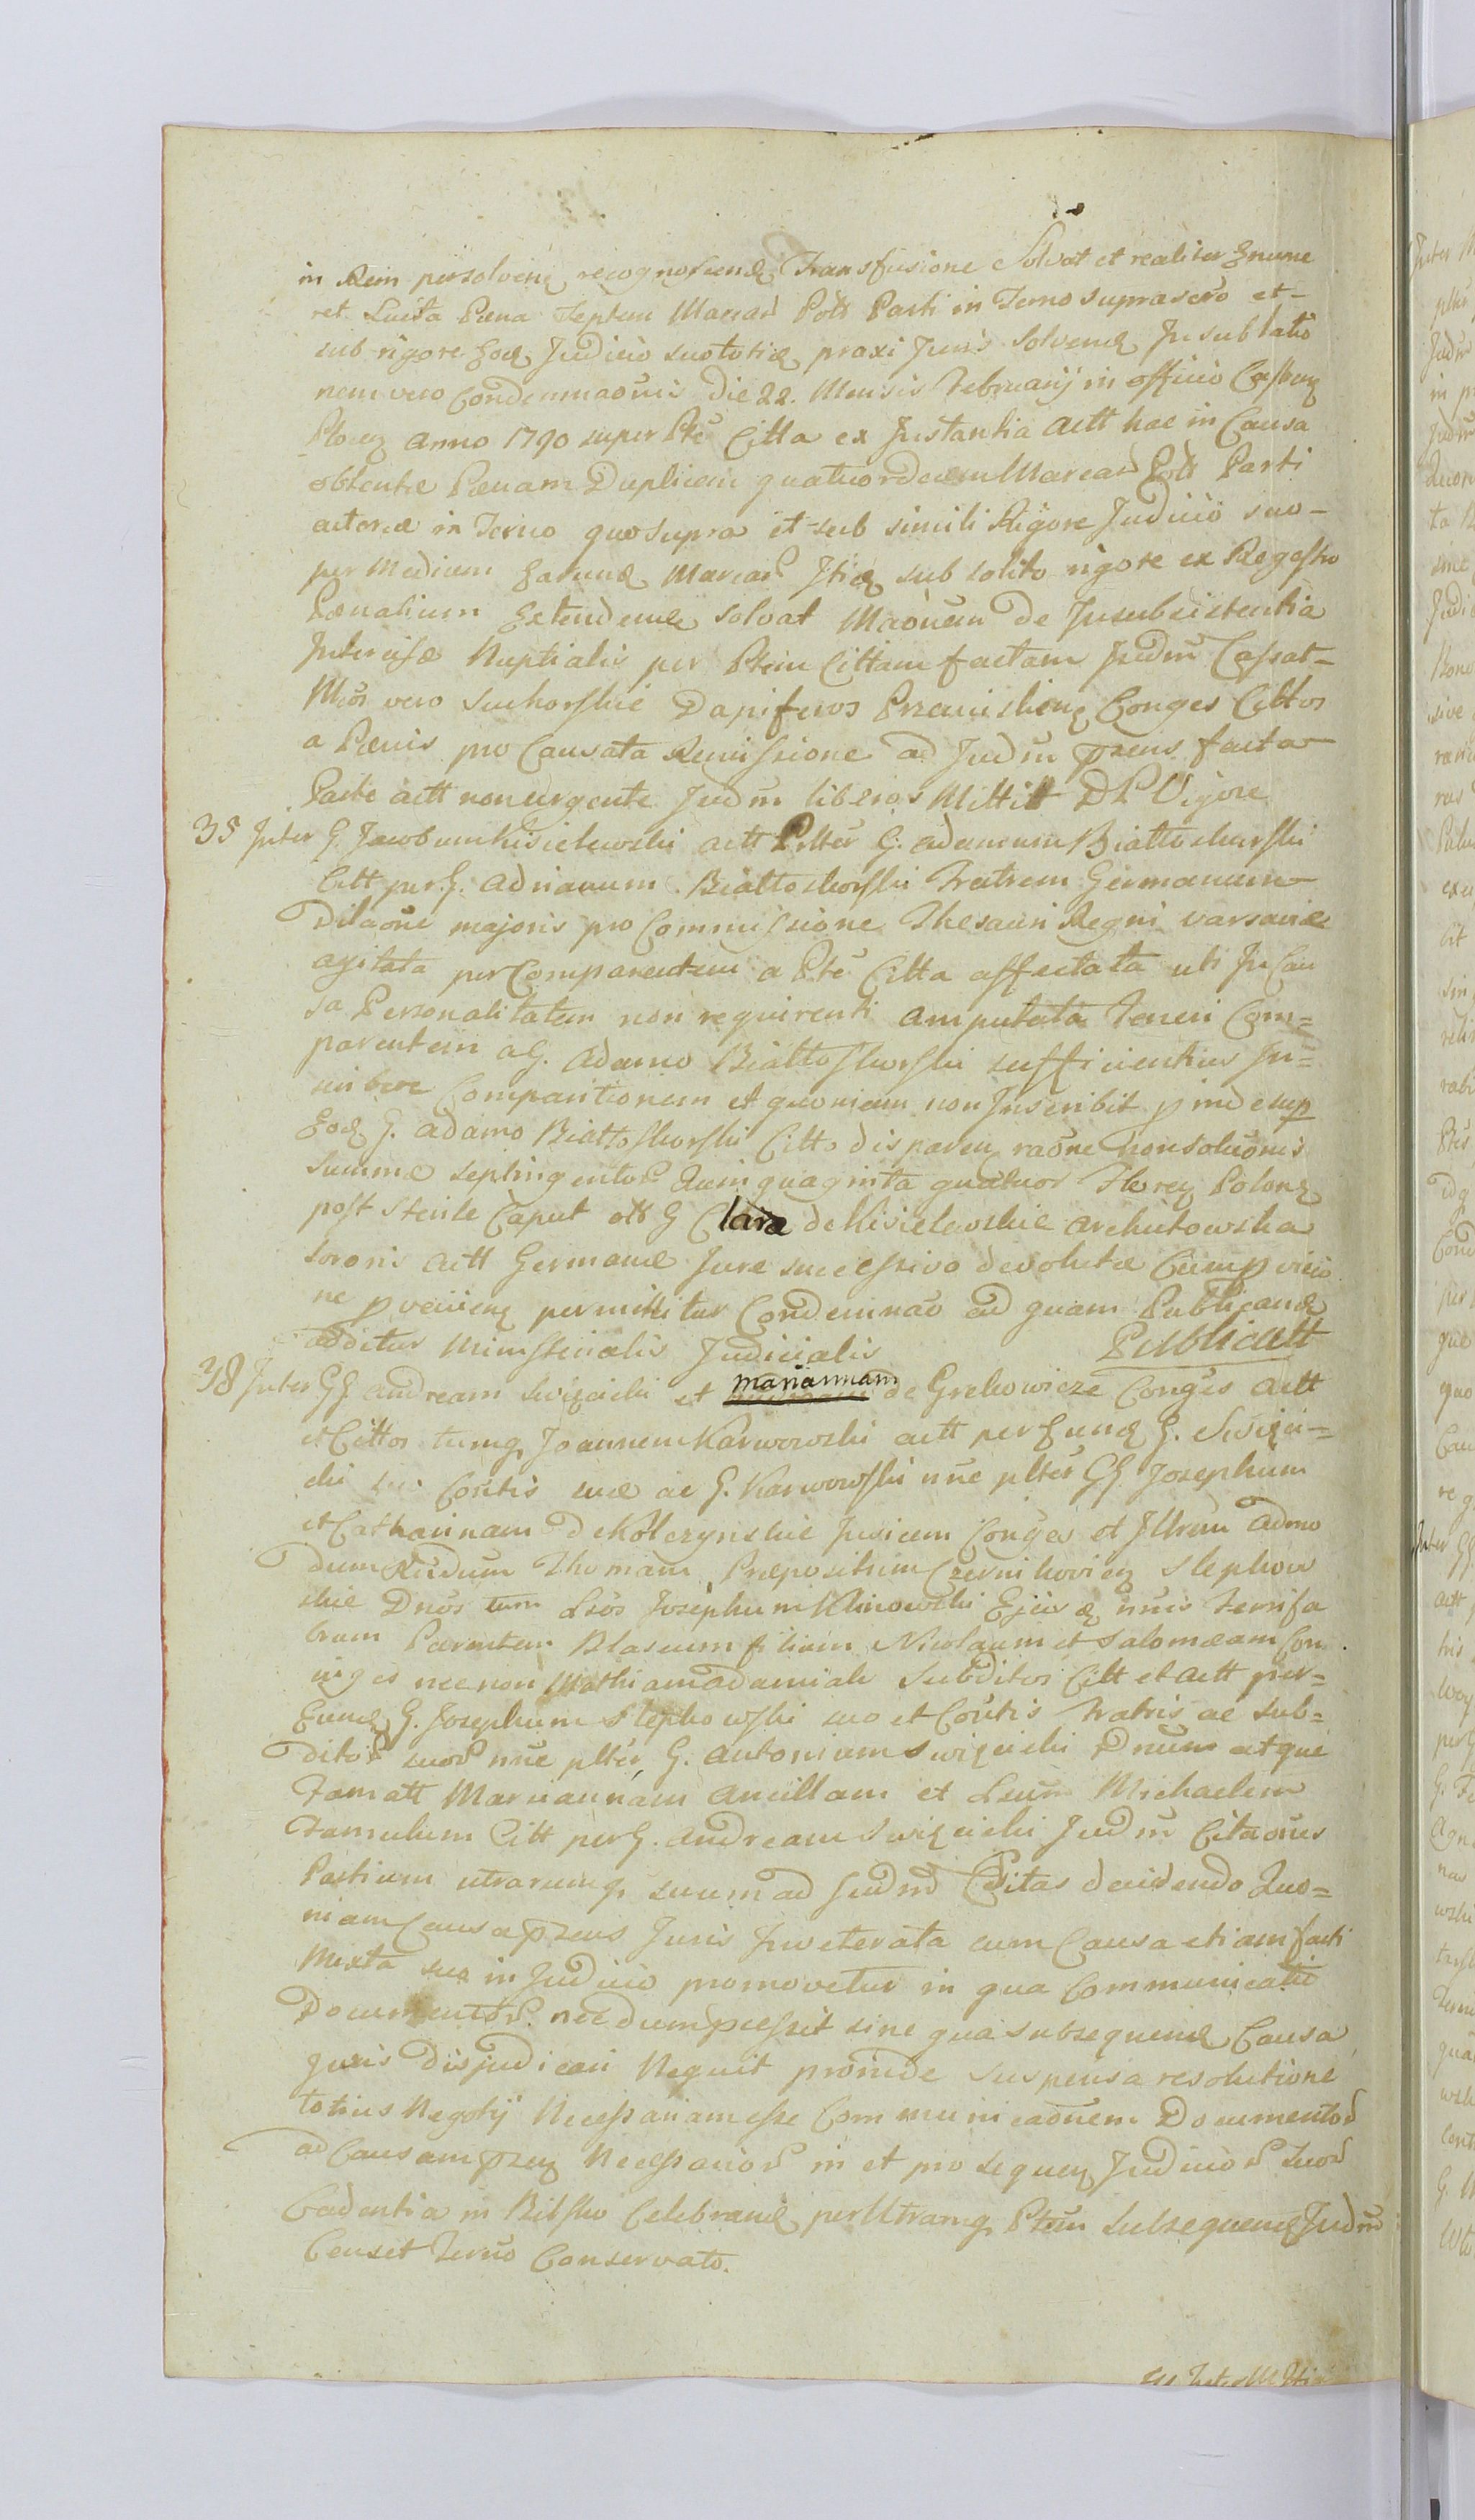 in Rem persolven recognoscend Transfusione Solvat et realiter Enume
ret Luita Pæna Septem Marcar Polł Parti in Terno suprascro et
sub rigore Eod Judicio suo totid praxi Juris solvend In sublatio
nem vero Condemnaonis Die 22. Mensis Februarij in officio Castren
Anno 1790 super Pte Citta ex Instantia Actt hac in Causa
obtentæ Pænam Duplicem quatuordecim Marcar Polł Parti
actoreæ in Terno quo supra et sub simili Rigore Judicio suo
per Medium Earund Marcar Itid sub solito rigore ex Regestro
Pænalium Extendend solvat Maonem de Insubsistentia
Intercisæ Nuptialis per Ptem Cittam factam Judm Cassat
Mcos vero Suchorskie Dapiferos Conges Cittos
a Pænis pro Causata Remissione ad Judm præns facta
Parte actt non urgente Judm liberos Mittit DL Vigore
35 Inter G. Jacobum Kisielewski actt G. Adamum Białłoskurski
Citt per G. Adrianum Białłoskorski Fratrem Germanum
Dilaone majoris pro Commissione Thesauri Regni Varsaviæ
agitata per Comparentem a Pte Citta affectata uti In Cau
sa Personalitatem non requirenti amputata Teneri Com=
parentem a G. Adamo Białłoskorski sufficientius In=
scribere Comparitionem et quoniam non Inscribit p inde sup
Eod G. Adamo Białłoskorski Citto disparen raone non soluonis
summæ septingentor Quinquaginta quatuor Floren Polon
post sterile Caput olł G Claræ de Kisielewskie Archutowska
sororis actt Germanæ Jure successivo devolutæ Cum p visio
ne p venien permittitur Condemnao ad quam Publicand
additur Ministerialis Judicialis Publicatt
38 Inter GG Andream Swięcicki et mariannam de Grekowicze Conges Actt
et Cittos tumq Joannem Karwowski actt per Eund G. Święci=
cki suo Contis suæ ac G. Karwowski nne plter GG Josephum
et Catharinam de Kolczynskie Conges et Illrem Admo
dum Rndum Thomam Præpositum Stępkow
skie Dnos tum Lsos Josephum Klinowski Ejusd
brum Parentem Blasium filium Nicolaum et Salomeam Con
iuges necnon Mathiam Adamiak Subditos Citt et Actt per=
Eund G. Josephum Stępkowski suo et Contis Fratris ac Sub=
ditor suor nne plter G. Antonium Swięcicki Dnum atque
Famatt Mariannam Ancillam et Lsum Michaelem
Famulum Citt per G. Andream Swięcicki Judm Citaones
Partium utrarumq suum ad Judm Editas decidendo Quo=
niam Causa præns Juris Inveterata cum Causa etiam facti
Mixta suo in Judicio promovetur in qua Communicatio
Documentor necdum præcessit sine qua subsequend Causa
Juris disjudicari Nequit proinde suspensa resolutione
totius Negotij Necessariam esse Communicaonem Documentor
ad Causam præn Necessarior in et pro sequen Judicior suor
Cadentia in Bielsko Celebrand per Utramq Ptem Subsequend Judm
Censet Terno Conservato.